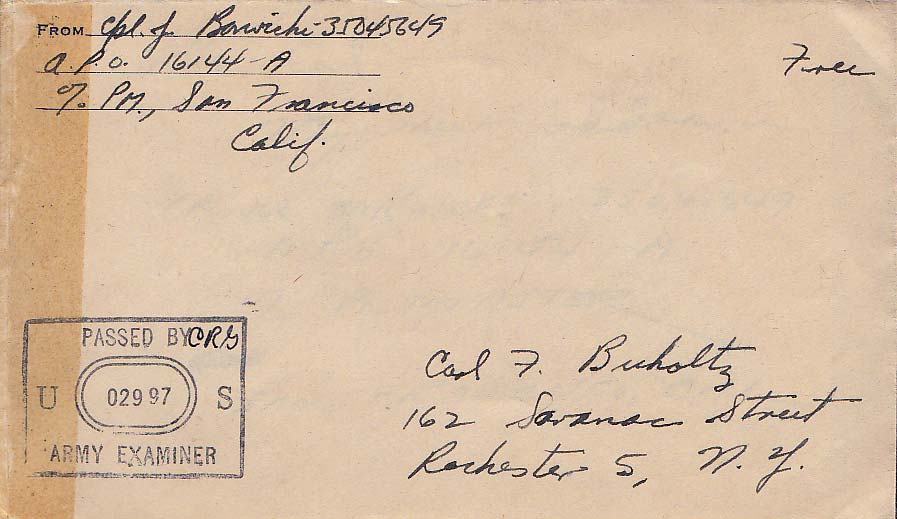 FROM Cpl. J. Barwicki 35045649
A.P.O. 16144-A
℅ PM., San Francisco
Calif.
Free
PASSED BY CRG
U 02997 S
ARMY EXAMINER
Carl F. Buholtz
162 Saranac Street
Rochester 5, N.Y.